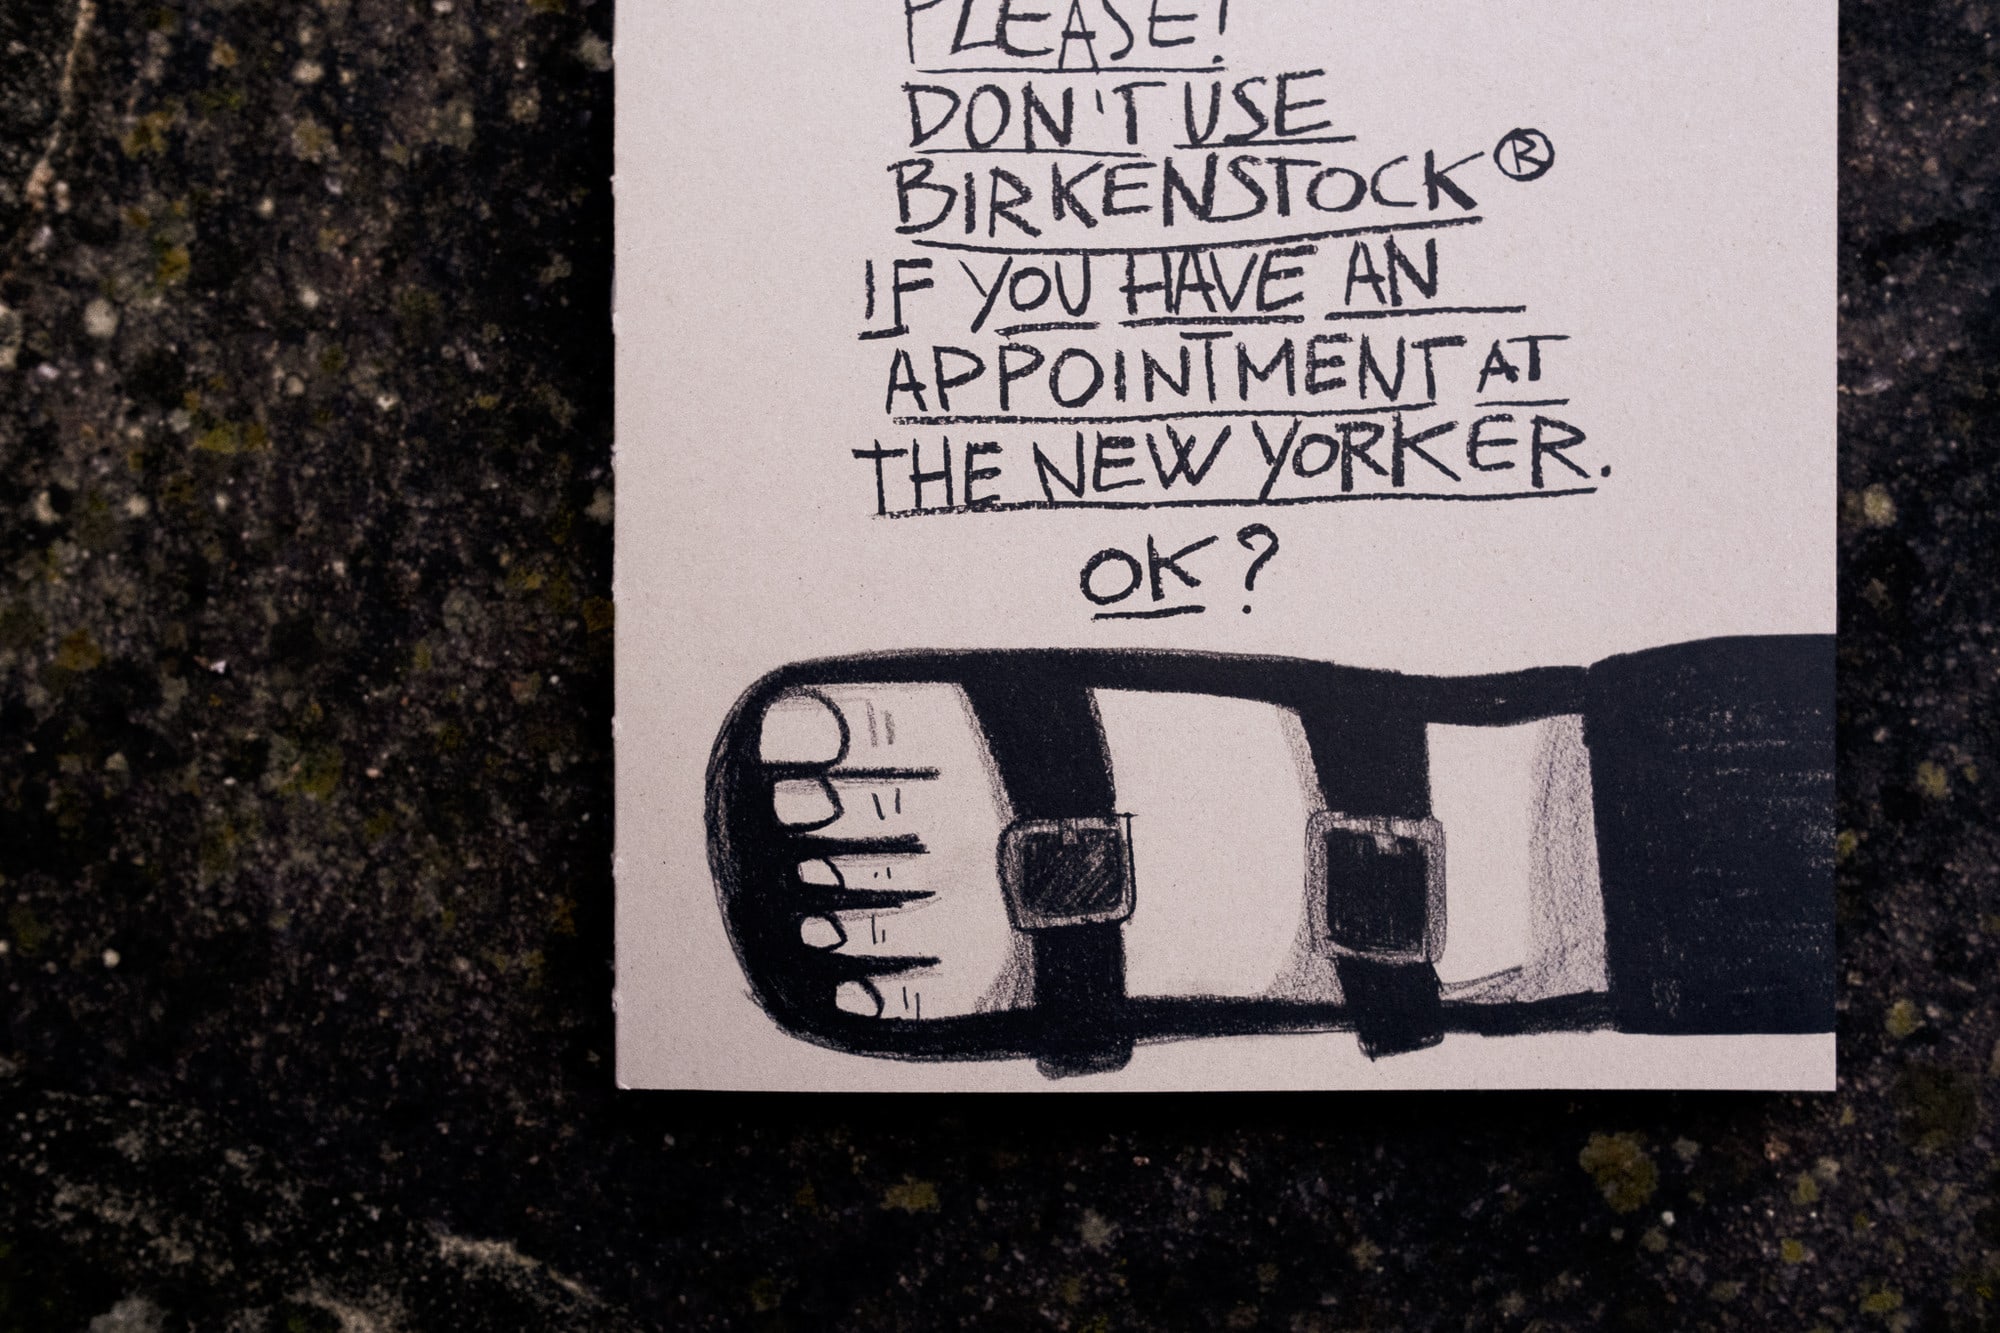 PLEASE!
DON'T USE
BIRKENSTOCK®
IF YOU HAVE AN
APPOINTMENT AT
THE NEW YORKER.
OK?